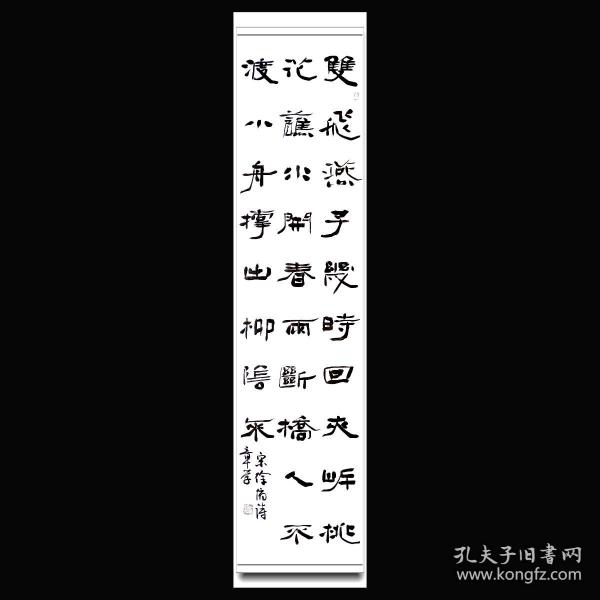 雙飛燕子幾時回夾岸桃
花蘸水開春雨斷橋人不
渡小舟撑出柳陰來
宋徐俯詩
孔夫子旧書网
www.kongfz.com